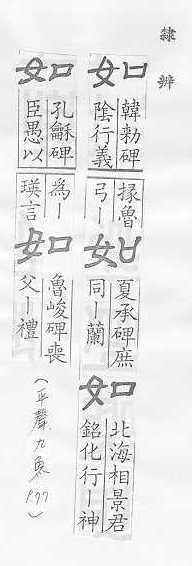 隸辨
如
韓勑碑
陰行義
掾魯
弓—
如
夏承碑庶
同—蘭
如
北海相景君
銘化行—神
如
孔龢碑
臣愚以
為—
瑛言
如
魯峻碑喪
父—禮
(平聲九魚 P77)